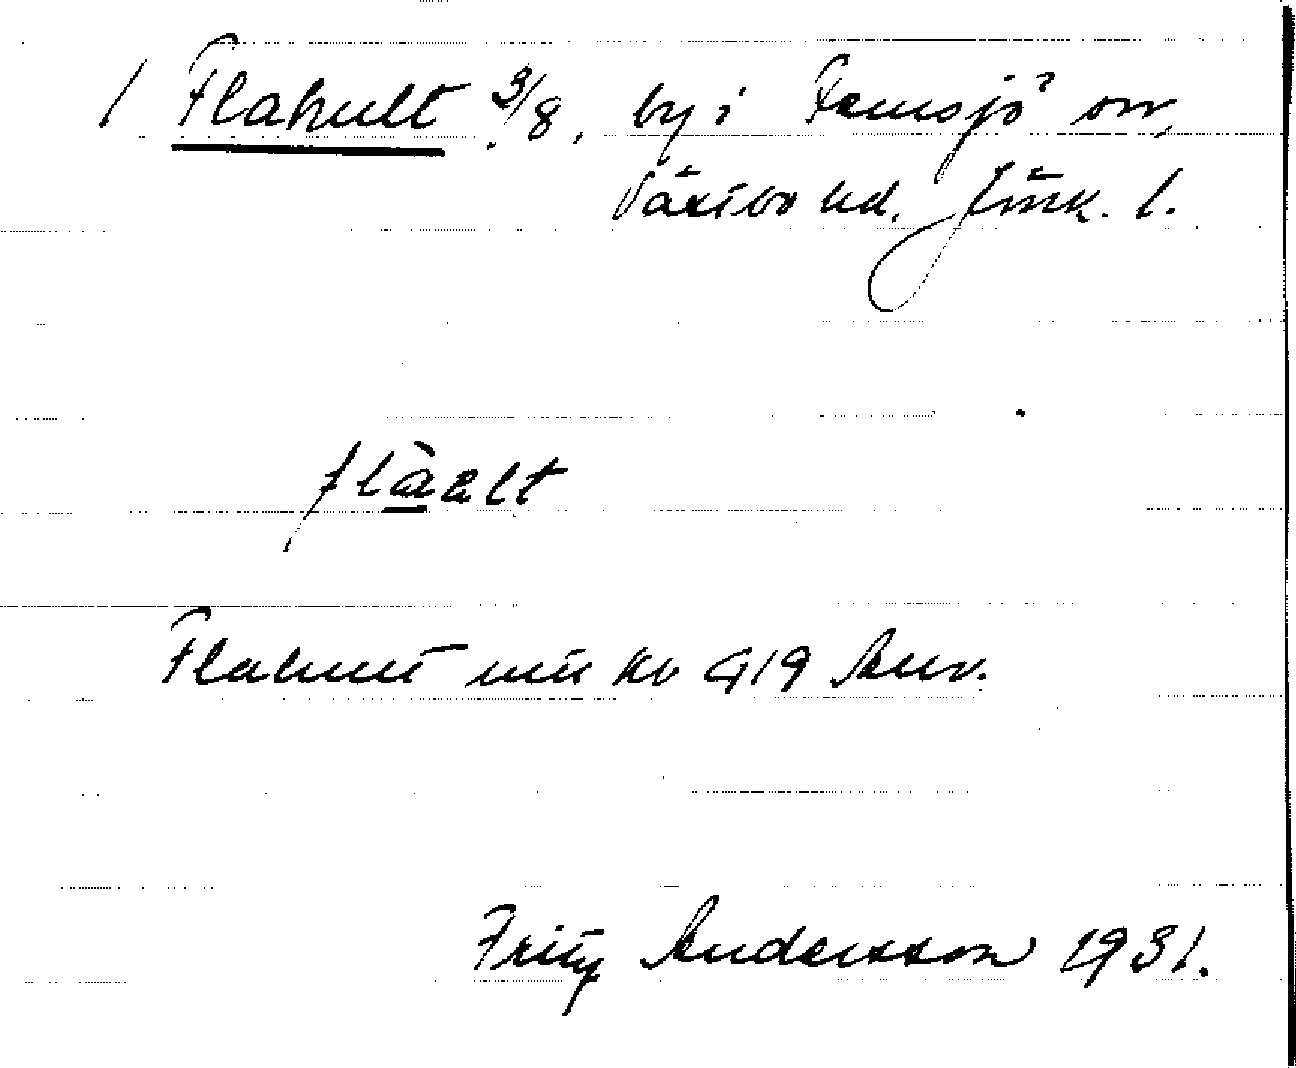 1 Flahult 3/8, by i Femsjö sn,
Västbo hd. Jönk. l.
flàalt
Flahult nu kv 419 Anv.
Fritz Andersson 1931.